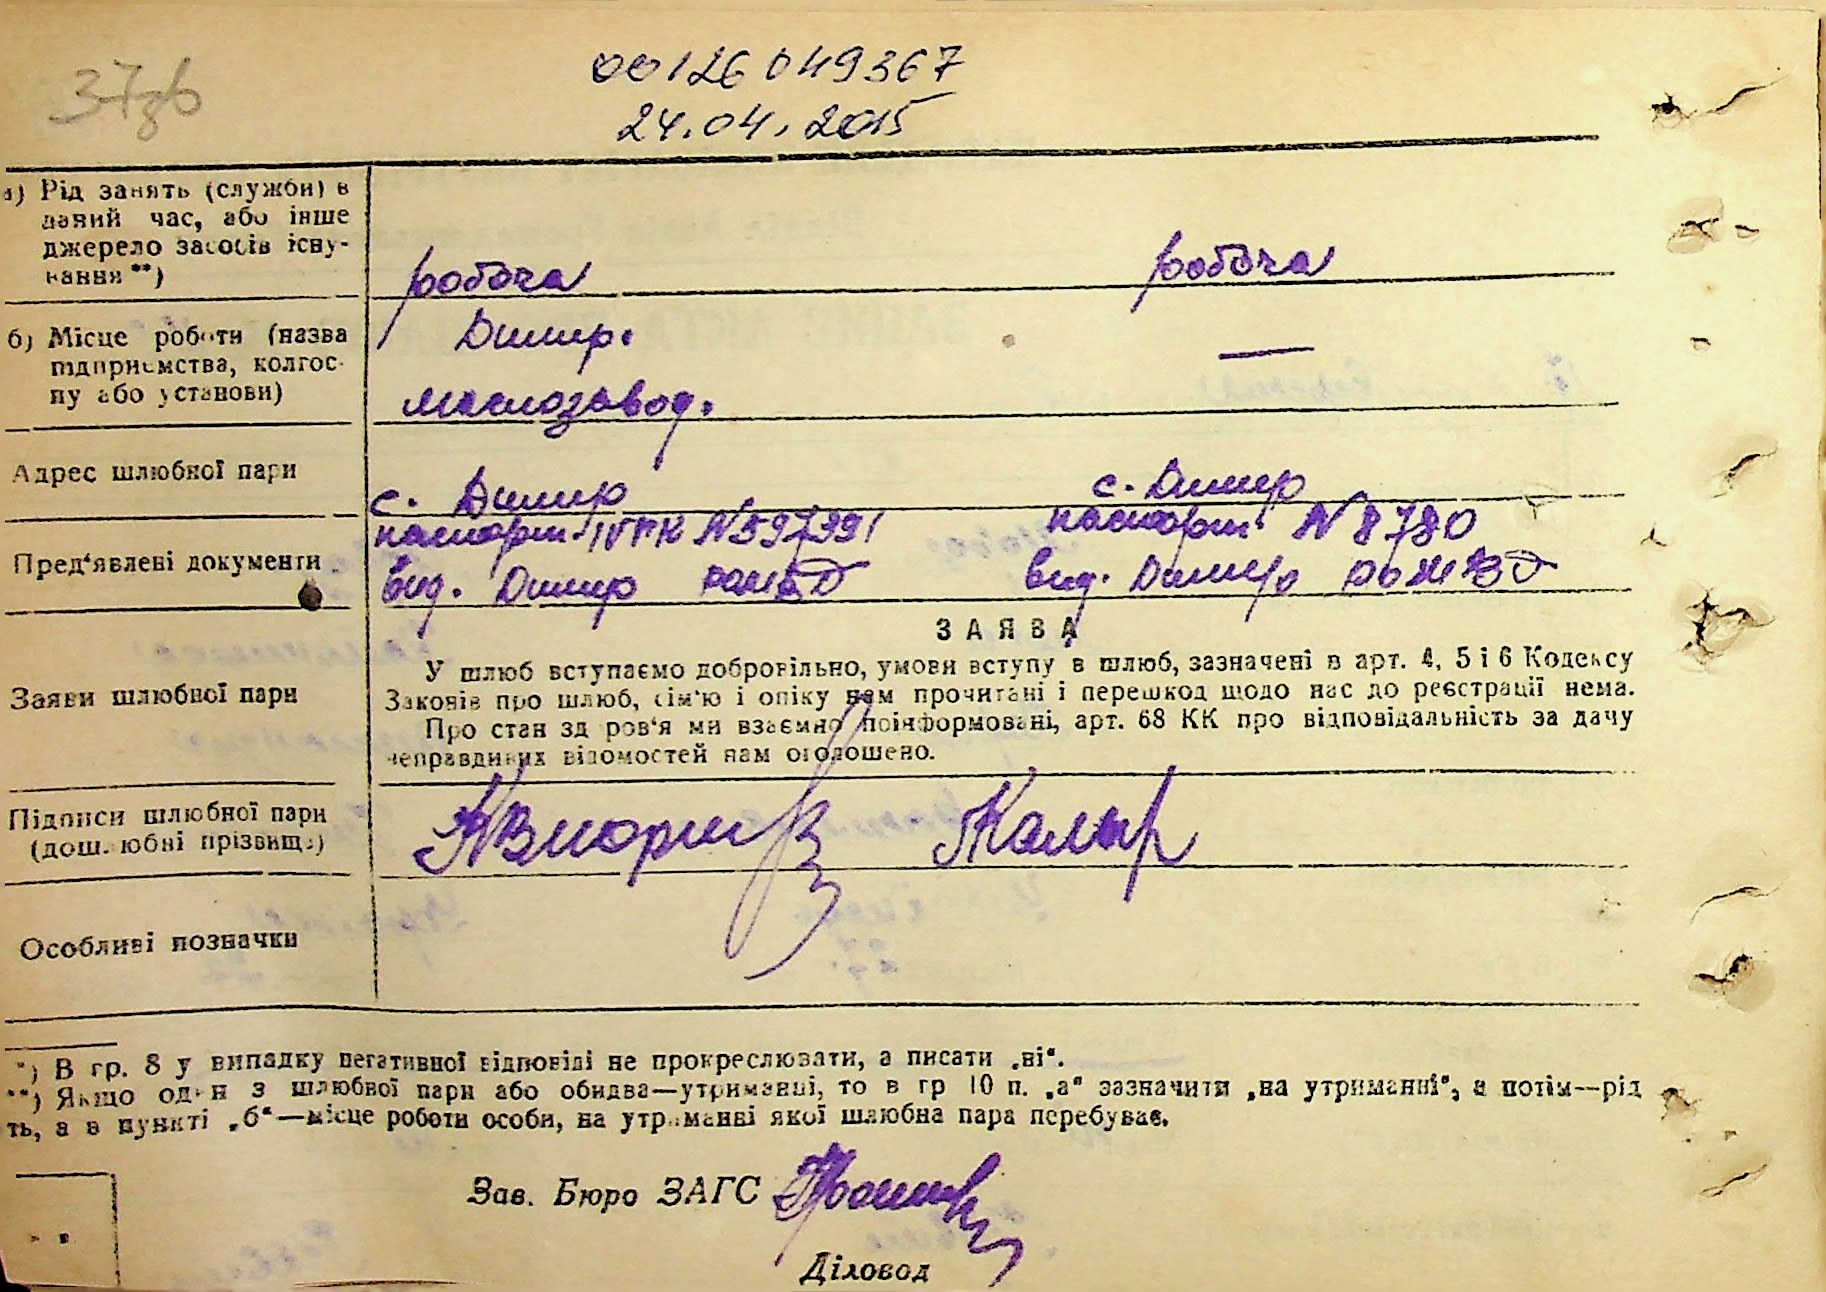 37зв
00126049367
24.04.2015
а) Рід занять (служби) в
даний час, або інше
джерело засобів існу-
вання **)
робоча робоча
б) Місце роботи (назва
підприємства, колгос-
пу або установи)
Димир. —
маслозавод.
Адрес шлюбної пари
с. Димир с. Димир
Пред'явлені документи
паспорт N 597991 паспорт N 8780
вид. Димир вид. Димир
ЗАЯВА
Заяви шлюбної пари
У шлюб вступаємо добровільно, умови вступу в шлюб, зазначені в арт. 4, 5 і 6 Кодексу
Законів про шлюб, сім'ю і опіку нам прочитані і перешкод щодо нас до реєстрації нема.
Про стан здоров'я ми взаємно поінформовані, арт. 68 КК про відповідальність за дачу
неправдивих відомостей нам оголошено.
Підписи шлюбної пари
(дошлюбні прізвища)
Особливі позначки
*) В гр. 8 у випадку негативної відповіді не прокреслювати, а писати „ні“.
**) Якщо один з шлюбної пари або обидва—утриманці, то в гр 10 п. „а“ зазначити „на утриманні“, а потім—рід
ть, а в пункті „б“—місце роботи особи, на утриманні якої шлюбна пара перебуває.
Зав. Бюро ЗАГС
Діловод